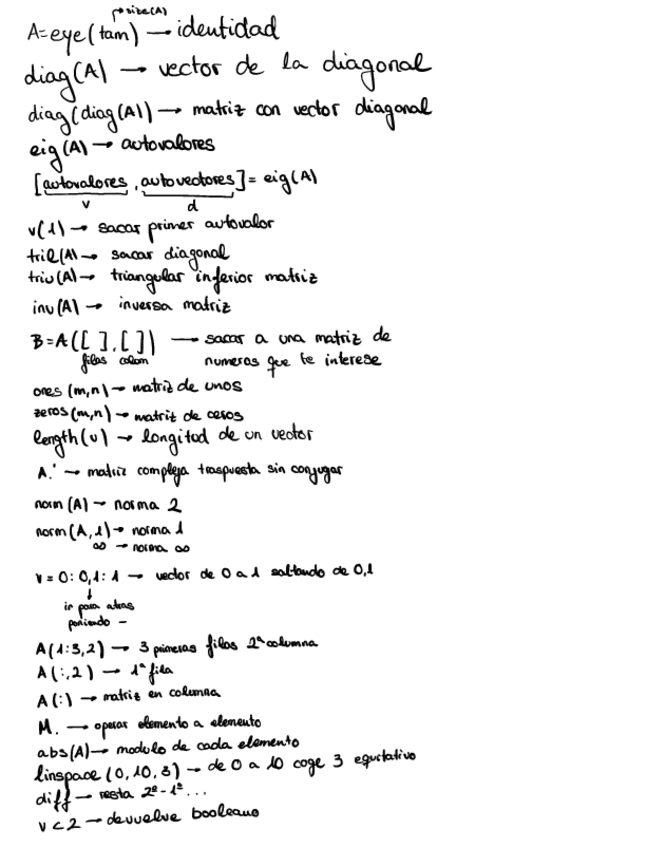 size(A)
A=eye(tam) → identidad
diag(A) → vector de la diagonal
diag(diag(A)) → matriz con vector diagonal
eig(A) → autovalores
[autovalores, autovectores] = eig(A)
v d
v(1) → sacar primer autovalor
tril(A) → sacar diagonal
triu(A) → triangular inferior matriz
inv(A) → inversa matriz
B=A([ ],[ ]) → sacar a una matriz de
filas colum numeros que te interese
ones(m,n) → matriz de unos
zeros(m,n) → matriz de ceros
length(v) → longitud de un vector
A.' → matriz compleja traspuesta sin conjugar
norm(A) → norma 2
norm(A,1) → norma 1
∞ → norma ∞
v=0:0,1:1 → vector de 0 a 1 saltando de 0,1
↓
ir para atras
poniendo -
A(1:3,2) → 3 primeras filas 2ª columna
A(:,2) → 1ª fila
A(:) → matriz en columna
M. → operar elemento a elemento
abs(A) → modulo de cada elemento
linspace(0,10,3) → de 0 a 10 coge 3 equitativo
diff → resta 2º-1º...
v<2 → devuelve booleano